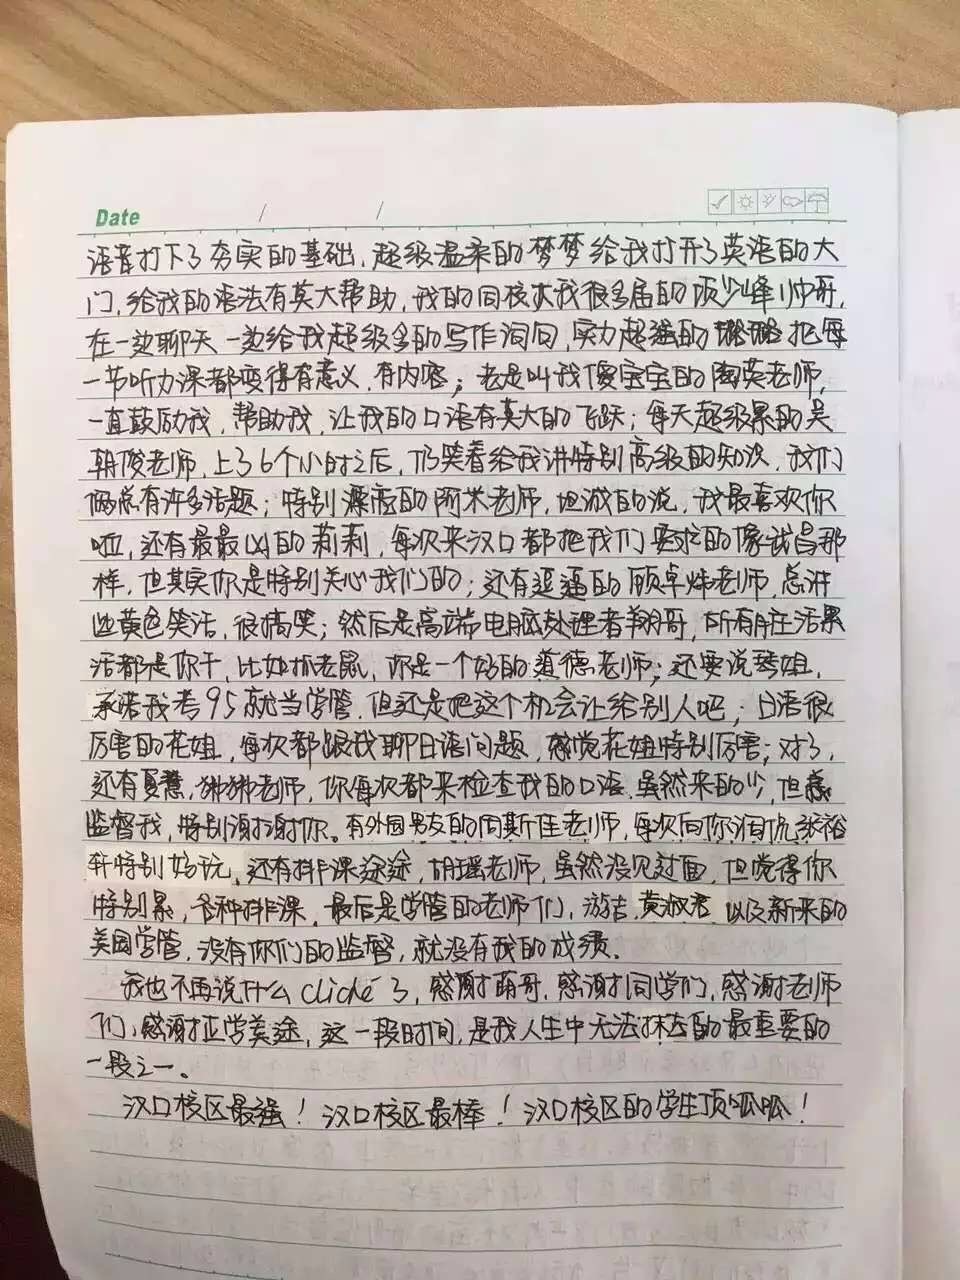 Date / /
语音打下了夯实的基础，超级温柔的梦梦给我打开了英语的大
门，给我的语法有莫大帮助，我的同校大我很多届的顶少峰小帅哥，
在一边聊天一边给我超级多的写作词句，实力超强的璐璐把每
一节听力课都变得有意义，有内容；老是叫我傻宝宝的陶英老师，
一直鼓励我，帮助我，让我的口语有莫大的飞跃；每天超级累的吴
朝俊老师，上了6个小时之后，仍笑着给我讲特别高级的知识，我们
俩总有许多话题；特别漂亮的阿米老师，坦诚的说，我最喜欢你
啦，还有最最凶的莉莉，每次来汉口都把我们要求的像武昌那
样，但其实你是特别关心我们的；还有逗逼的顾卓炜老师，总讲
些黄色笑话，很搞笑；然后是高端电脑处理者翔哥，所有脏活累
活都是你干，比如抓老鼠，你是一个好的道德老师；还要说琴姐，
承诺我考95就当学管，但还是把这个机会让给别人吧；日语很
厉害的花姐，每次都跟我聊日语问题，感觉花姐特别厉害；对了，
还有夏慧，狒狒老师，你每次都来检查我的口语，虽然来的少，但总
监督我，特别谢谢你。有外国男友的周斯佳老师，每次向你调侃张裕
轩特别好玩，还有排课途途，胡瑶老师，虽然没见过面，但觉得你
特别累，各种排课，最后是学管的老师们，游吉，黄淑君，以及新来的
美国学管，没有你们的监督，就没有我的成绩。
我也不再说什么cliché了，感谢萌哥，感谢同学们，感谢老师
们，感谢正学美途，这一段时间，是我人生中无法抹去的最重要的
一段之一。
汉口校区最强！汉口校区最棒！汉口校区的学生顶呱呱！